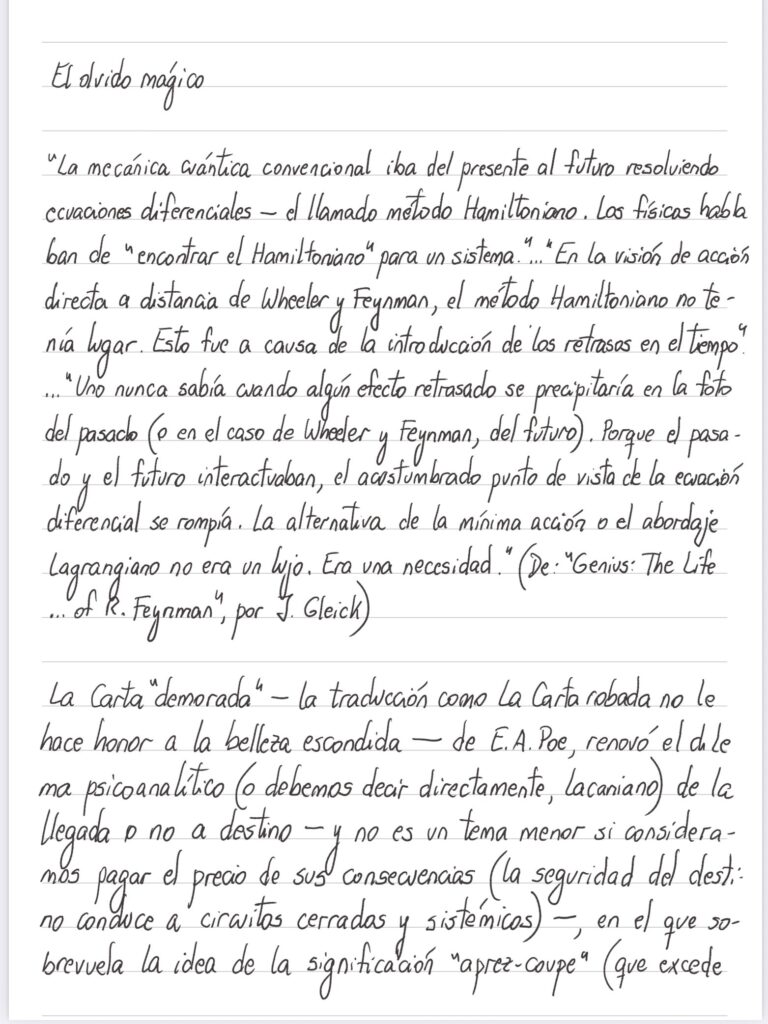 El olvido mágico
"La mecánica cuántica convencional iba del presente al futuro resolviendo
ecuaciones diferenciales — el llamado método Hamiltoniano. Los físicos habla
ban de "encontrar el Hamiltoniano" para un sistema."..."En la visión de acción
directa a distancia de Wheeler y Feynman, el método Hamiltoniano no te-
nía lugar. Esto fue a causa de la introducción de los retrasos en el tiempo"
..."Uno nunca sabía cuando algún efecto retrasado se precipitaría en la foto
del pasado (o en el caso de Wheeler y Feynman, del futuro). Porque el pasa-
do y el futuro interactuaban, el acostumbrado punto de vista de la ecuación
diferencial se rompía. La alternativa de la mínima acción o el abordaje
Lagrangiano no era un lujo. Era una necesidad." (De: "Genius: The Life
... of R. Feynman", por J. Gleick)
La Carta "demorada" — la traducción como La Carta robada no le
hace honor a la belleza escondida — de E.A. Poe, renovó el dile
ma psicoanalítico (o debemos decir directamente, lacaniano) de la
llegada o no a destino — y no es un tema menor si considera-
mos pagar el precio de sus consecuencias (la seguridad del desti-
no conduce a circuitos cerrados y sistémicos) —, en el que so-
brevuela la idea de la significación "aprez-coupe" (que excede